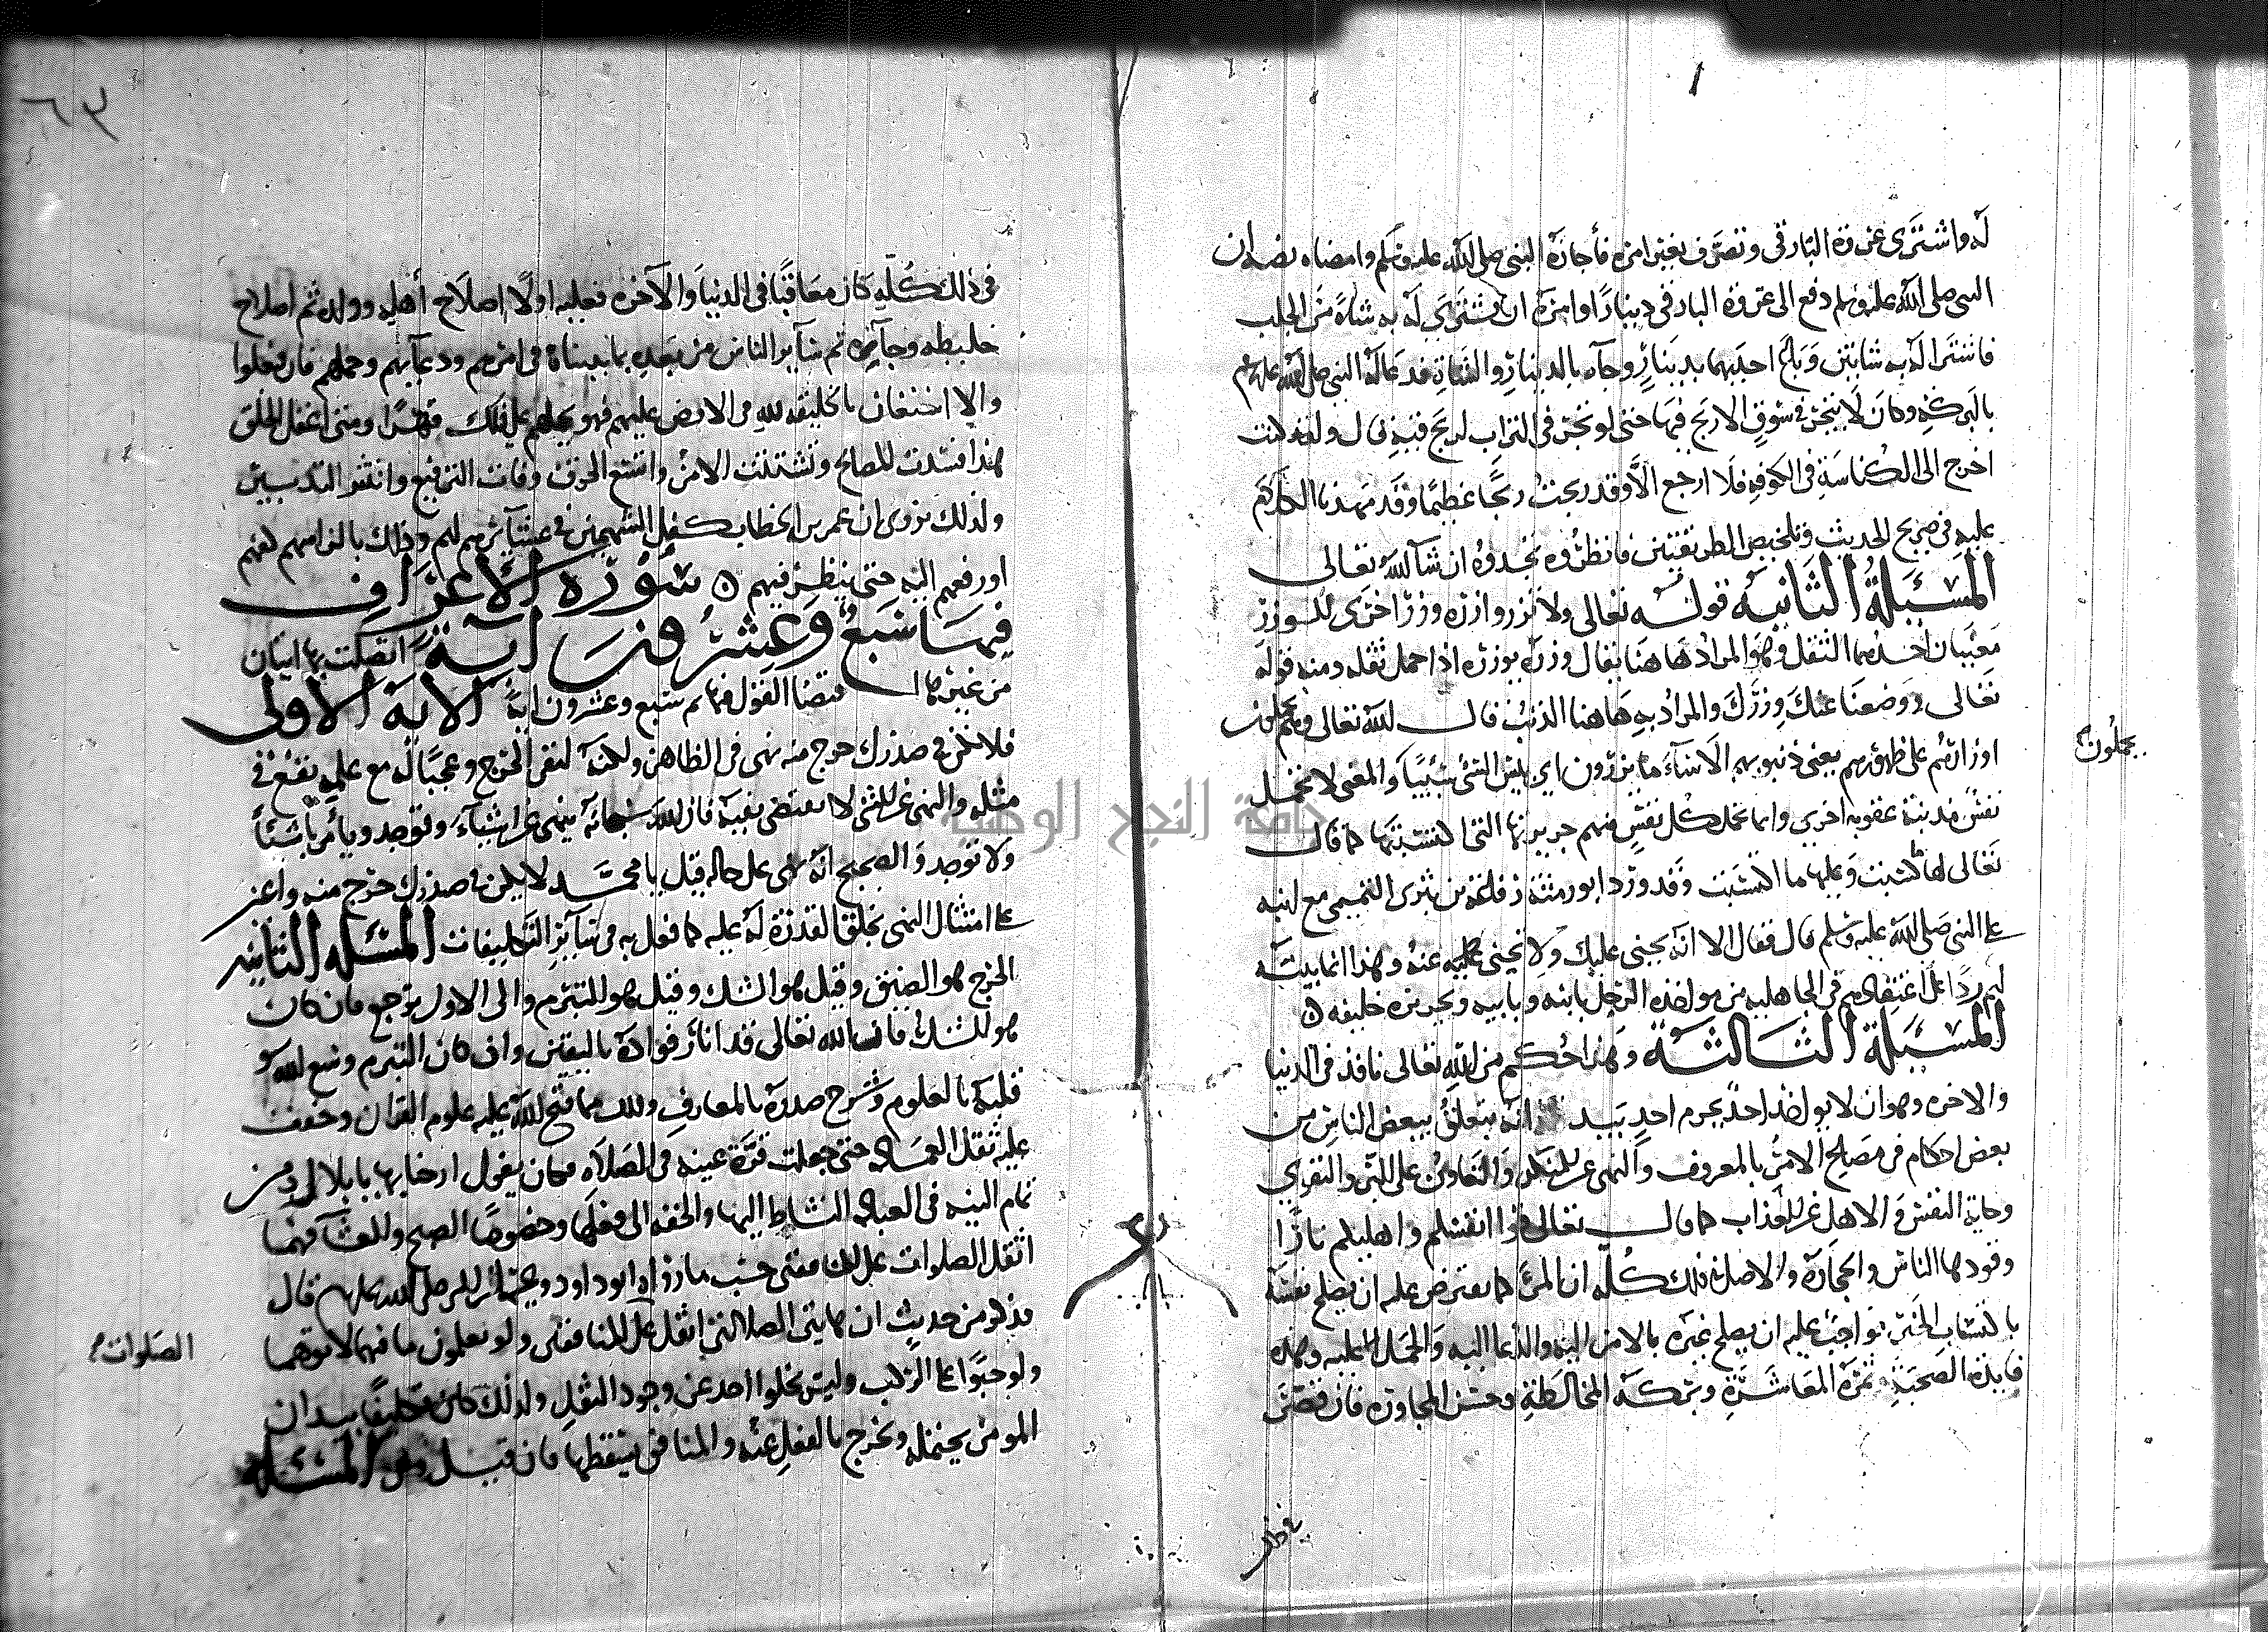 له واشترى عروة البارقي وتصرف بغير امره فأجازه النبي صلى الله عليه وسلم وامضاه نصه ان
النبي صلى الله عليه وسلم دفع الى عروة البارقي دينارًا وامره ان يشتري له به شاة من الجلب
فاشترا له به شاتين وباع احديهما بدينار وجاه بالدينار والشاة فدعا له النبي صلى الله عليه وسلم
بالبركة وكان لا يتجر في سوق الا ربح فيها حتى لو تجر في التراب لربح فيه قال ولقد كنت
اخرج الى الكناسة في الكوفة فلا ارجع الا وقد ربحت ربحًا عظيمًا وقد مهدنا الكلام
عليه في صريح الحديث وتلخيص الطريقتين فانظروه تجدوه ان شا الله تعالى
المسئلة الثانية قوله تعالى ولا تزر وازرة وزر اخرى للوزر
معنيان احدهما الثقل وهو المراد هاهنا يقال وزره يوزره اذا حمل ثقله ومنه قوله
تعالى ووضعنا عنك وزرك والمراد به هاهنا الذنب قال الله تعالى وهم يحملون
يحملون
اوزارهم على ظهورهم يعني ذنوبهم الا ساء ما يزرون اي بيس الشي شييا والمعنى لا تحمل
نفس مذنبة عقوبة اخرى وانما تحمل كل نفس منهم جريرتها التي اكتسبتها كما قال
تعالى لها ما كسبت وعليها ما اكتسبت وقد ورد ابو رمثة رفاعة بن يثربي التميمي مع ابنه
على النبي صلى الله عليه وسلم قال فقال الا انه يجني عليك ولا تجني عليه عنه وهذا انما بينه
لهم ردا على اعتقادهم في الجاهلية من مواخذة الرجل بابنه وبابيه وبجريرة حليفه
المسئلة الثالثة وهذا حكم من الله تعالى نافذ في الدنيا
والاخرة وهو ان لا يواخذ احد بجرم احد بيد انه يتعلق ببعض الناس من
بعض احكام في مصالح الامر بالمعروف والنهي عن المنكر والتعاون على البر والتقوى
وحماية النفس والاهل عن العذاب كما قال تعالى قوا انفسكم واهليكم نارًا
وقودها الناس والحجارة والاصل في ذلك كله ان المرء كما يفترض عليه ان يصلح نفسه
باكتساب الخير فواجب عليه ان يصلح غيره بالامر اليه والدعا اليه والحمل عليه وهذه
فايدة الصحبة وثمرة المعاشرة وبركة المخالطة وحسن المجاورة فان قصر
في ذلك كله كان معاقبًا في الدنيا والآخرة فعليه اولا اصلاح أهله وولده ثم اصلاح
خليطه وجاره ثم ساير الناس من بعده بما بيناه في امرهم ودعايهم وحملهم فان فعلوا
والا استعان بالخليفة لله في الارض عليهم فهو يحملهم على ذلك قهرًا ومتى اغفل الخلق
هذا فسدت المصالح وتشتتت الامر واتسع الخرق وفات الترقيع وانتشر التدبير
ولذلك يروى ان عمر بن الخطاب كفل المتهمين في عشائرهم لهم وذلك بالتزامهم كفهم
او رفعهم اليه حتى ينظر فيهم سورة الاعراف
فيها سبع وعشرون اية اتصلت بها ايتان
من غيرها فتصا القول فيها تم سبع وعشرون اية الاية الاولى
فلا تكن في صدرك حرج منه نهى في الظاهر ولكنه لنفي الحرج وعجبًا له مع علمه تقنع في
مثله والنهي عن الشي لا يقتضي نفيه فان الله سبحانه ينهى عن اشياء وتوجد ويأمر بأشيأ
ولا توجد والصحيح انه نهى على حاله قيل يا محمد لا يكن في صدرك حرج منه واعز
على امتثال النهي بخلق القدرة له عليه كما فعل به في ساير التكليفات المسئلة الثانية
الحرج هو الضيق وقيل هو الشك وقيل هو للتبرم والى الاول يرجع فان كان
هو للشك فان الله تعالى قد انار فواده باليقين وان كان التبرم وسع الله
قلبه بالعلوم وشرح صدره بالمعارف وذلك مما فتح الله عليه علوم القرآن وخفف
عليه ثقل العبادة حتى جعلت قرة عينه في الصلاة فكان يقول ارحنا بها يا بلال ومن
تمام النية في العبادة النشاط اليها والخفة الى فعلها وخصوصًا الصبح والعشا فهما
اثقل الصلوات على المنافقين حسب ما رواه ابو داود وغيره عن النبي صلى الله عليه وسلم قال
فذكر من حديث ان هاتين الصلاتين اثقل على المنافقين ولو تعلمون ما فيهما لاتوهما
الصلوات
ولو حبوًا على الركب وليس يخلوا احد عن وجود الثقل ولذلك كان تكليفًا بيد ان
المومن يحتمله ويخرج بالفعل عنه والمنافق يسقطها فان قيل وهي المسئلة